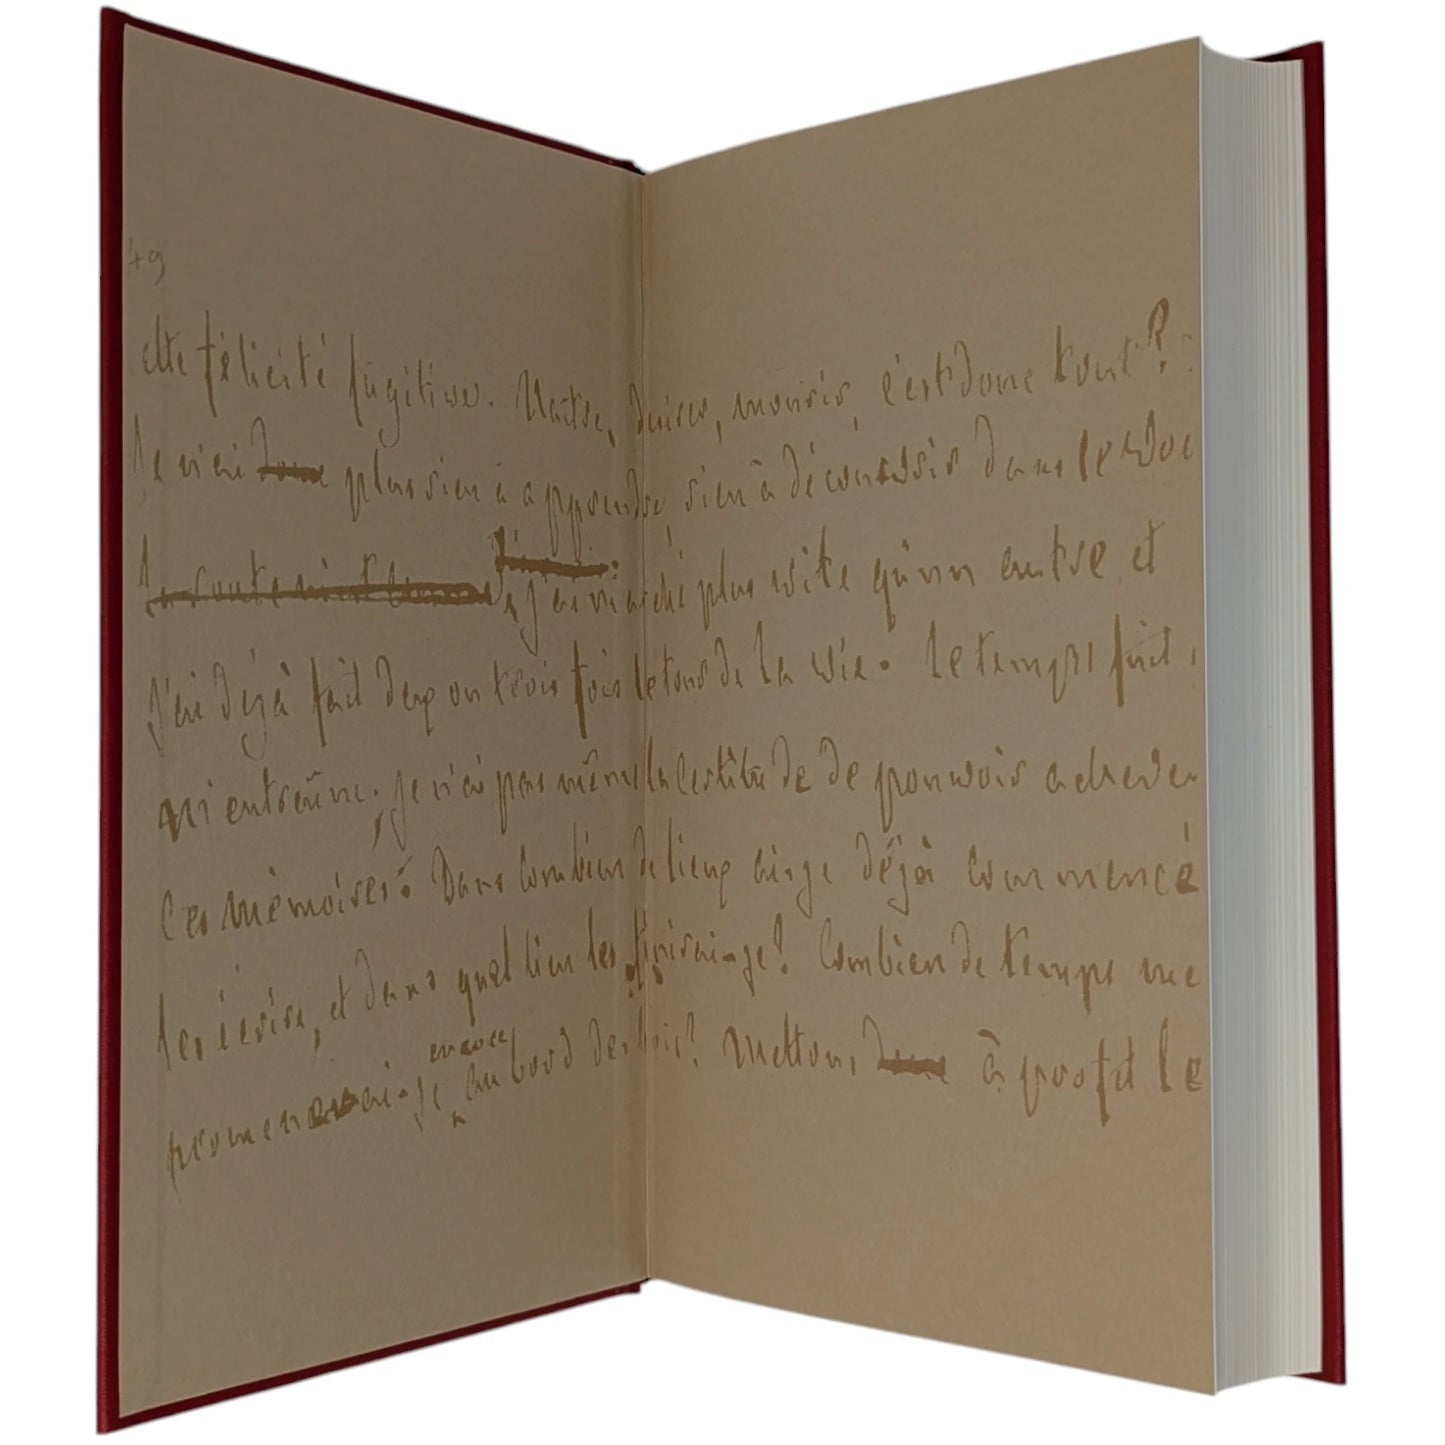 49
cette félicité fugitive. Naître, désirer, mourir, c'est donc tout?
Je n'ai donc plus rien à apprendre, rien à découvrir dans le
la route j'ai marché plus vite qu'un autre et
j'ai déjà fait deux ou trois fois le tour de la vie. Le temps fuit,
m'entraîne; je n'ai pas même la certitude de pouvoir achever
ces mémoires. Dans combien de lieux ai-je déjà commencé
les écrire, et dans quel lieu les finirai-je? Combien de temps me
promenerai-je encore au bord des bois? Mettons donc à profit le